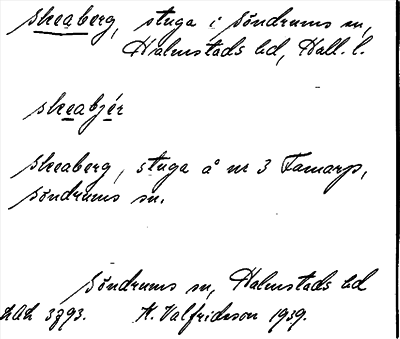 Skeaberg, stuga i Söndrums sn,
Halmstads hd, Hall. l.
skeabjér
Skeaberg, stuga å nr 3 Tamarp,
Söndrums sn.
Söndrums sn, Halmstads hd
3793. H. Valfridsson 1939.